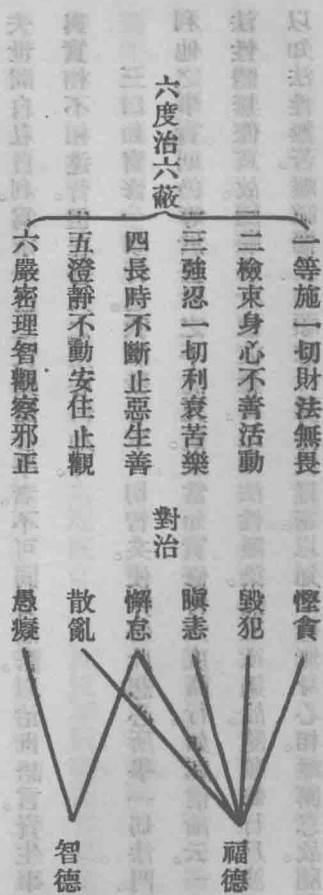 六度治六蔽
一等施一切財法無畏
二檢束身心不善活動
三強忍一切利衰苦樂
四長時不斷止惡生善
五澄靜不動安住止觀
六嚴密理智觀察邪正
對治
慳貪
毀犯
瞋恚
懈怠
散亂
愚癡
福德
智德